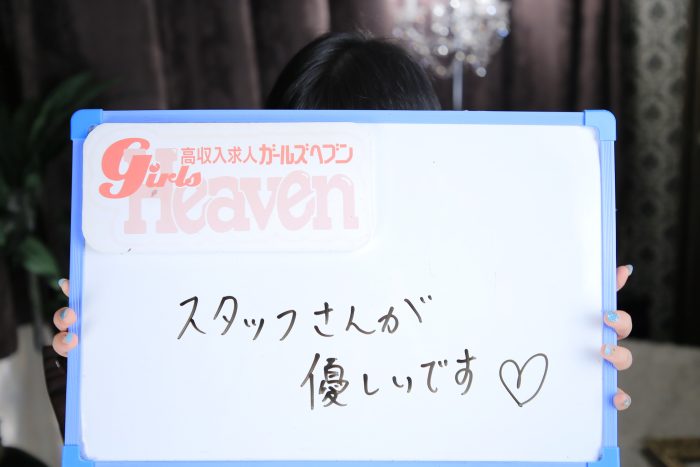 高収入求人ガールズヘブン
Girls
Heaven
スタッフさんが
優しいです♡